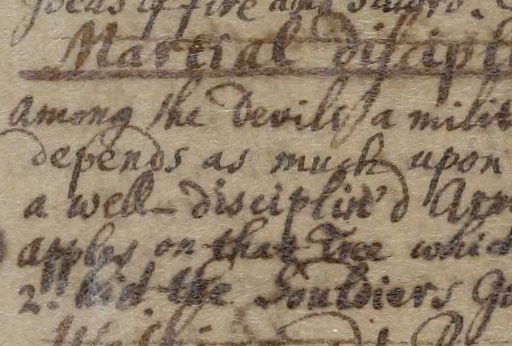 Ideas of fire and sword.
Martial discipl
among the Devils, a milit
depends as much upon
a well-disciplin'd Arm
apples on that Tree whic
2. bid the Souldiers